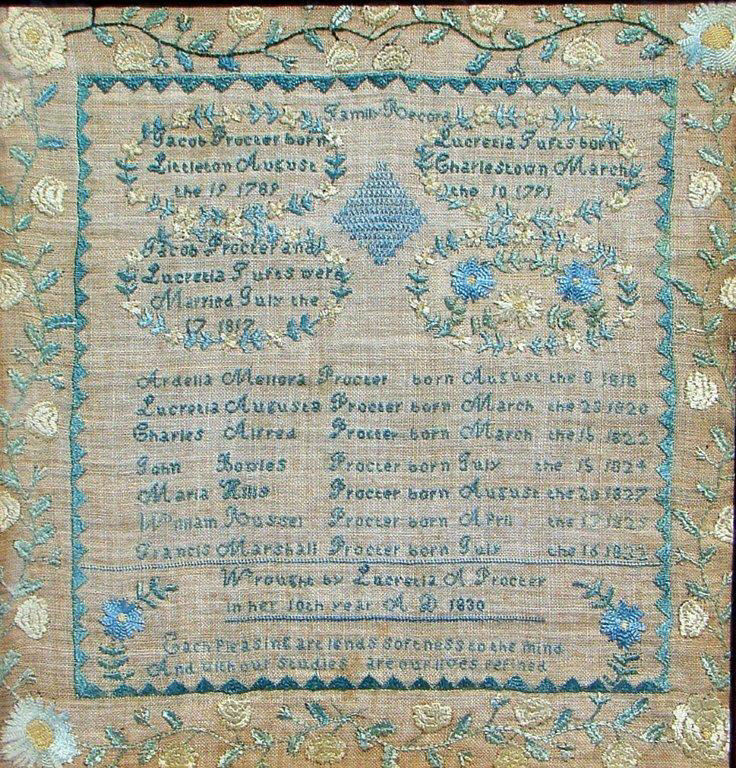 Family Record
Jacob Procter born
Littleton August
the 19 1789
Lucretia Tufts born
Charlestown March
the 10 1791
Jacob Procter and
Lucretia Tufts were
Married July the
17 1817
Ardelia Mellora Procter born August the 8 1818
Lucretia Augusta Procter born March the 28 1820
Charles Alfred Procter born March the 16 1822
John Bowles Procter born July the 15 1824
Maria Procter born August the 20 1827
William Russel Procter born April the
Francis Marshall Procter born July the 16
Wrought by Lucretia A Procter
in her 10th year A D 1830
Each pleasing art lends softness to the mind
And with our studies are our lives refined